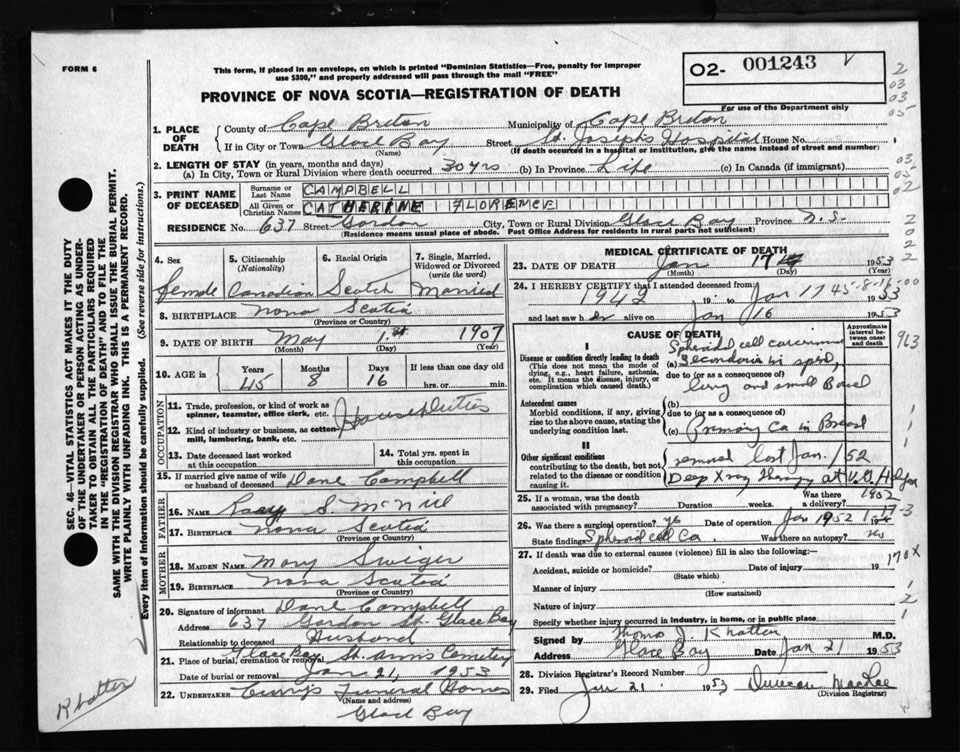 FORM 6
This form, if placed in an envelope, on which is printed "Dominion Statistics—Free, penalty for improper
use $300," and properly addressed will pass through the mail "FREE"
O2- 001243
For use of the Department only
PROVINCE OF NOVA SCOTIA—REGISTRATION OF DEATH
1. PLACE OF DEATH County of Cape Breton Municipality of Cape Breton
If in City or Town Glace Bay (Name) Street St. Joseph's Hospital House No.
(If death occurred in a hospital or institution, give the name instead of street and number)
2. LENGTH OF STAY (in years, months and days)
(a) In City, Town or Rural Division where death occurred 30 yrs (b) In Province Life (c) In Canada (if immigrant)
3. PRINT NAME OF DECEASED Surname or Last Name CAMPBELL
All Given or Christian Names CATHERINE FLORENCE
RESIDENCE No. 637 Street Gordon City, Town or Rural Division Glace Bay Province N.S.
(Residence means usual place of abode. Post Office Address for residents in rural parts not sufficient)
4. Sex female
5. Citizenship (Nationality) Canadian
6. Racial Origin Scotch
7. Single, Married, Widowed or Divorced (write the word) Married
8. BIRTHPLACE Nova Scotia
(Province or Country)
9. DATE OF BIRTH May 1st 1907
(Month) (Day) (Year)
10. AGE in Years 45 Months 8 Days 16 If less than one day hrs. or min.
OCCUPATION
11. Trade, profession, or kind of work as spinner, teamster, office clerk, etc. House Duties
12. Kind of industry or business, as cotton-mill, lumbering, bank, etc.
13. Date deceased last worked at this occupation
14. Total yrs. spent in this occupation
15. If married give name of wife or husband of deceased Dane Campbell
FATHER
16. NAME S. McNeil
17. BIRTHPLACE Nova Scotia
(Province or Country)
MOTHER
18. MAIDEN NAME Mary
19. BIRTHPLACE Nova Scotia
(Province or Country)
20. Signature of informant Dane Campbell
Address 637 Gordon St. Glace Bay
Relationship to deceased Husband
21. Place of burial, cremation or removal Glace Bay St. Ann's Cemetery
Date of burial or removal Jan 21, 1953
22. UNDERTAKER Curry's Funeral Homes
(Name and address)
Glace Bay
MEDICAL CERTIFICATE OF DEATH
23. DATE OF DEATH Jan 17 1953
(Month) (Day) (Year)
24. I HEREBY CERTIFY that I attended deceased from
1942 19 to Jan 17 1953
and last saw her alive on Jan 16 1953
45-8-16-00
CAUSE OF DEATH
Approximate interval between onset and death
I
Disease or condition directly leading to death
(This does not mean the mode of dying, e.g., heart failure, asthenia, etc. It means the disease, injury, or complication which caused death.)
Spheroidal cell carcinoma
(a) Secondaries in spine,
due to (or as a consequence of)
lung and small Bowel
Antecedent causes
Morbid conditions, if any, giving rise to the above cause, stating the underlying condition last.
(b)
due to (or as a consequence of)
(c) Primary Ca in Breast
II
Other significant conditions
contributing to the death, but not related to the disease or condition causing it.
removed last Jan. /52
Deep Xray Therapy at V.G. Hlfx
1952
25. If a woman, was the death associated with pregnancy? Duration weeks. Was there a delivery?
26. Was there a surgical operation? yes Date of operation Jan 1952
State findings Spheroid cell Ca Was there an autopsy? no
27. If death was due to external causes (violence) fill in also the following:—
Accident, suicide or homicide? Date of injury 19
(State which)
Manner of injury
(How sustained)
Nature of injury
Specify whether injury occurred in industry, in home, or in public place
Signed by Thomas J. Khattar M.D.
Address Glace Bay Date Jan 21 1953
28. Division Registrar's Record Number
29. Filed Jan 21 1953 Duncan MacRae
(Division Registrar)
SEC. 46—VITAL STATISTICS ACT MAKES IT THE DUTY
OF THE UNDERTAKER OR PERSON ACTING AS UNDER-
TAKER TO OBTAIN ALL THE PARTICULARS REQUIRED
IN THE "REGISTRATION OF DEATH" AND TO FILE THE
SAME WITH THE DIVISION REGISTRAR WHO SHALL ISSUE THE BURIAL PERMIT.
WRITE PLAINLY WITH UNFADING INK. THIS IS A PERMANENT RECORD.
Every item of information should be carefully supplied. (See reverse side for instructions.)
Khattar
2
03
03
05
03
05
02
2
0
2
2
963
1
1
17-3
170X
1
2
1